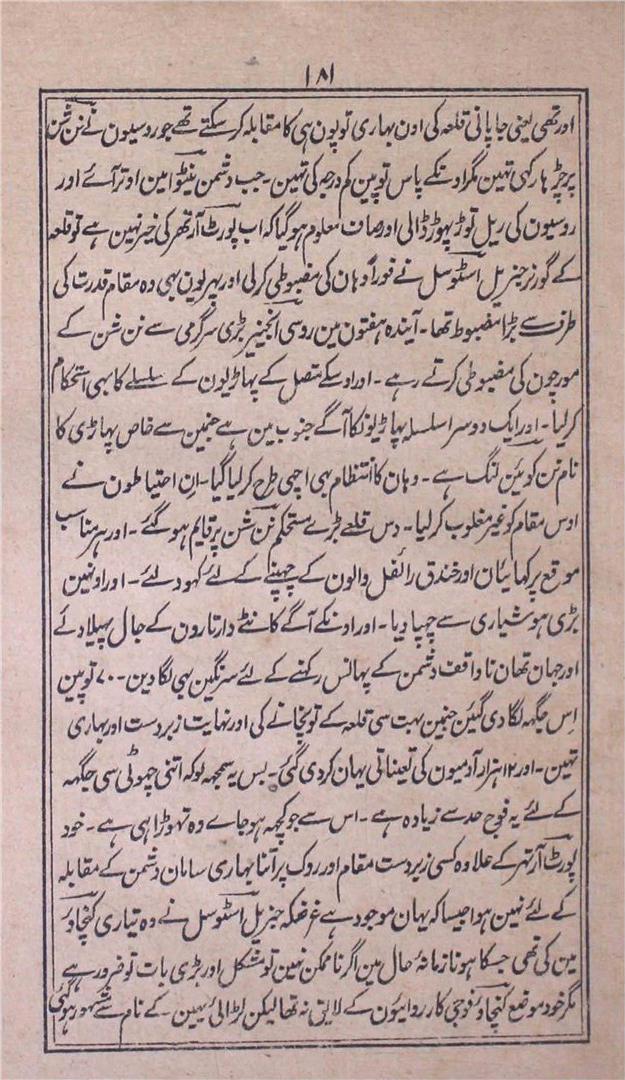 ۱۸۱
اور تھی یعنی جاپانی قلعہ کی اون بہاری توپون ہی کا مقابلہ کر سکتے تھے جو روسیون نے نن شن
پر چڑہا رکہی تہین مگر اونکے پاس توپین کم درجہ کی تہین۔ جب دشمن پنٹوا مین اوتر آئے اور
روسیون کی ریل توڑ پہوڑ ڈالی اور صاف معلوم ہوگیا کہ اب پورٹ آرتھر کی خیر نہین ہے تو قلعہ
کے گورنر جنریل اسٹوسل نے فوراً وہان کی مضبوطی کرلی اور پہر یون بہی وہ مقام قدرت کی
طرف سے بڑا مضبوط تھا۔ آیندہ ہفتون مین روسی انجنیر بڑی سرگرمی سے نن شن کے
مورچون کی مضبوطی کرتے رہے۔ اور اوسکے متصل کے پہاڑیون کے سلسلے کا بہی استحکام
کرلیا۔ اور ایک دوسرا سلسلہ پہاڑیونکا آگے جنوب مین ہے جنمین سے خاص پہاڑی کا
نام نن کوئین لنگ ہے۔ وہان کا انتظام بہی اچہی طرح کرلیا گیا۔ اِن احتیاطون نے
اوس مقام کو غیر مغلوب کرلیا۔ دس قلعے بڑے مستحکم نن شن پر قایم ہوگئے۔ اور ہر مناسب
موقع پر کہائیان اور خندق رائفل والون کے چہپنے کے لئے کہود لئے۔ اور اونہین
بڑی ہوشیاری سے چہپا دیا۔ اور اونکے آگے کانٹے دار تارون کے جال پہیلا دئے
اور جہان تھان ناواقف دشمن کے پہانس رکہنے کے لئے سرنگین بہی لگادین۔ ۷۰ توپین
اِس جگہہ لگادی گئین جنمین بہت سی قلعہ کے توپخانے کی اور نہایت زبردست اور بہاری
تہین۔ اور ۱۲ ہزار آدمیون کی تعیناتی یہان کردی گئی۔ بس یہ سمجہہ لو کہ اتنی چہوٹی سی جگہہ
کے لئے یہ فوج حد سے زیادہ ہے۔ اس سے جو کچہہ ہوجاے وہ تہوڑا ہی ہے۔ خود
پورٹ آرتہر کے علاوہ کسی زبردست مقام اور روک پر آتنا بہاری سامان دشمن کے مقابلہ
کے لئے نہین ہوا جیسا کہ یہان موجود ہے غرضکہ جنریل اسٹوسل نے وہ تیاری کنچاؤ
مین کی تھی جسکا ہونا زمانۂ حال مین اگر ناممکن نہین تو مشکل اور بڑی بات تو ضرور ہے
مگر خود موضع کنچاؤ فوجی کارروائیون کے لایق نہ تھا لیکن لڑائی یہین کے نام سے مشہور ہوگئی